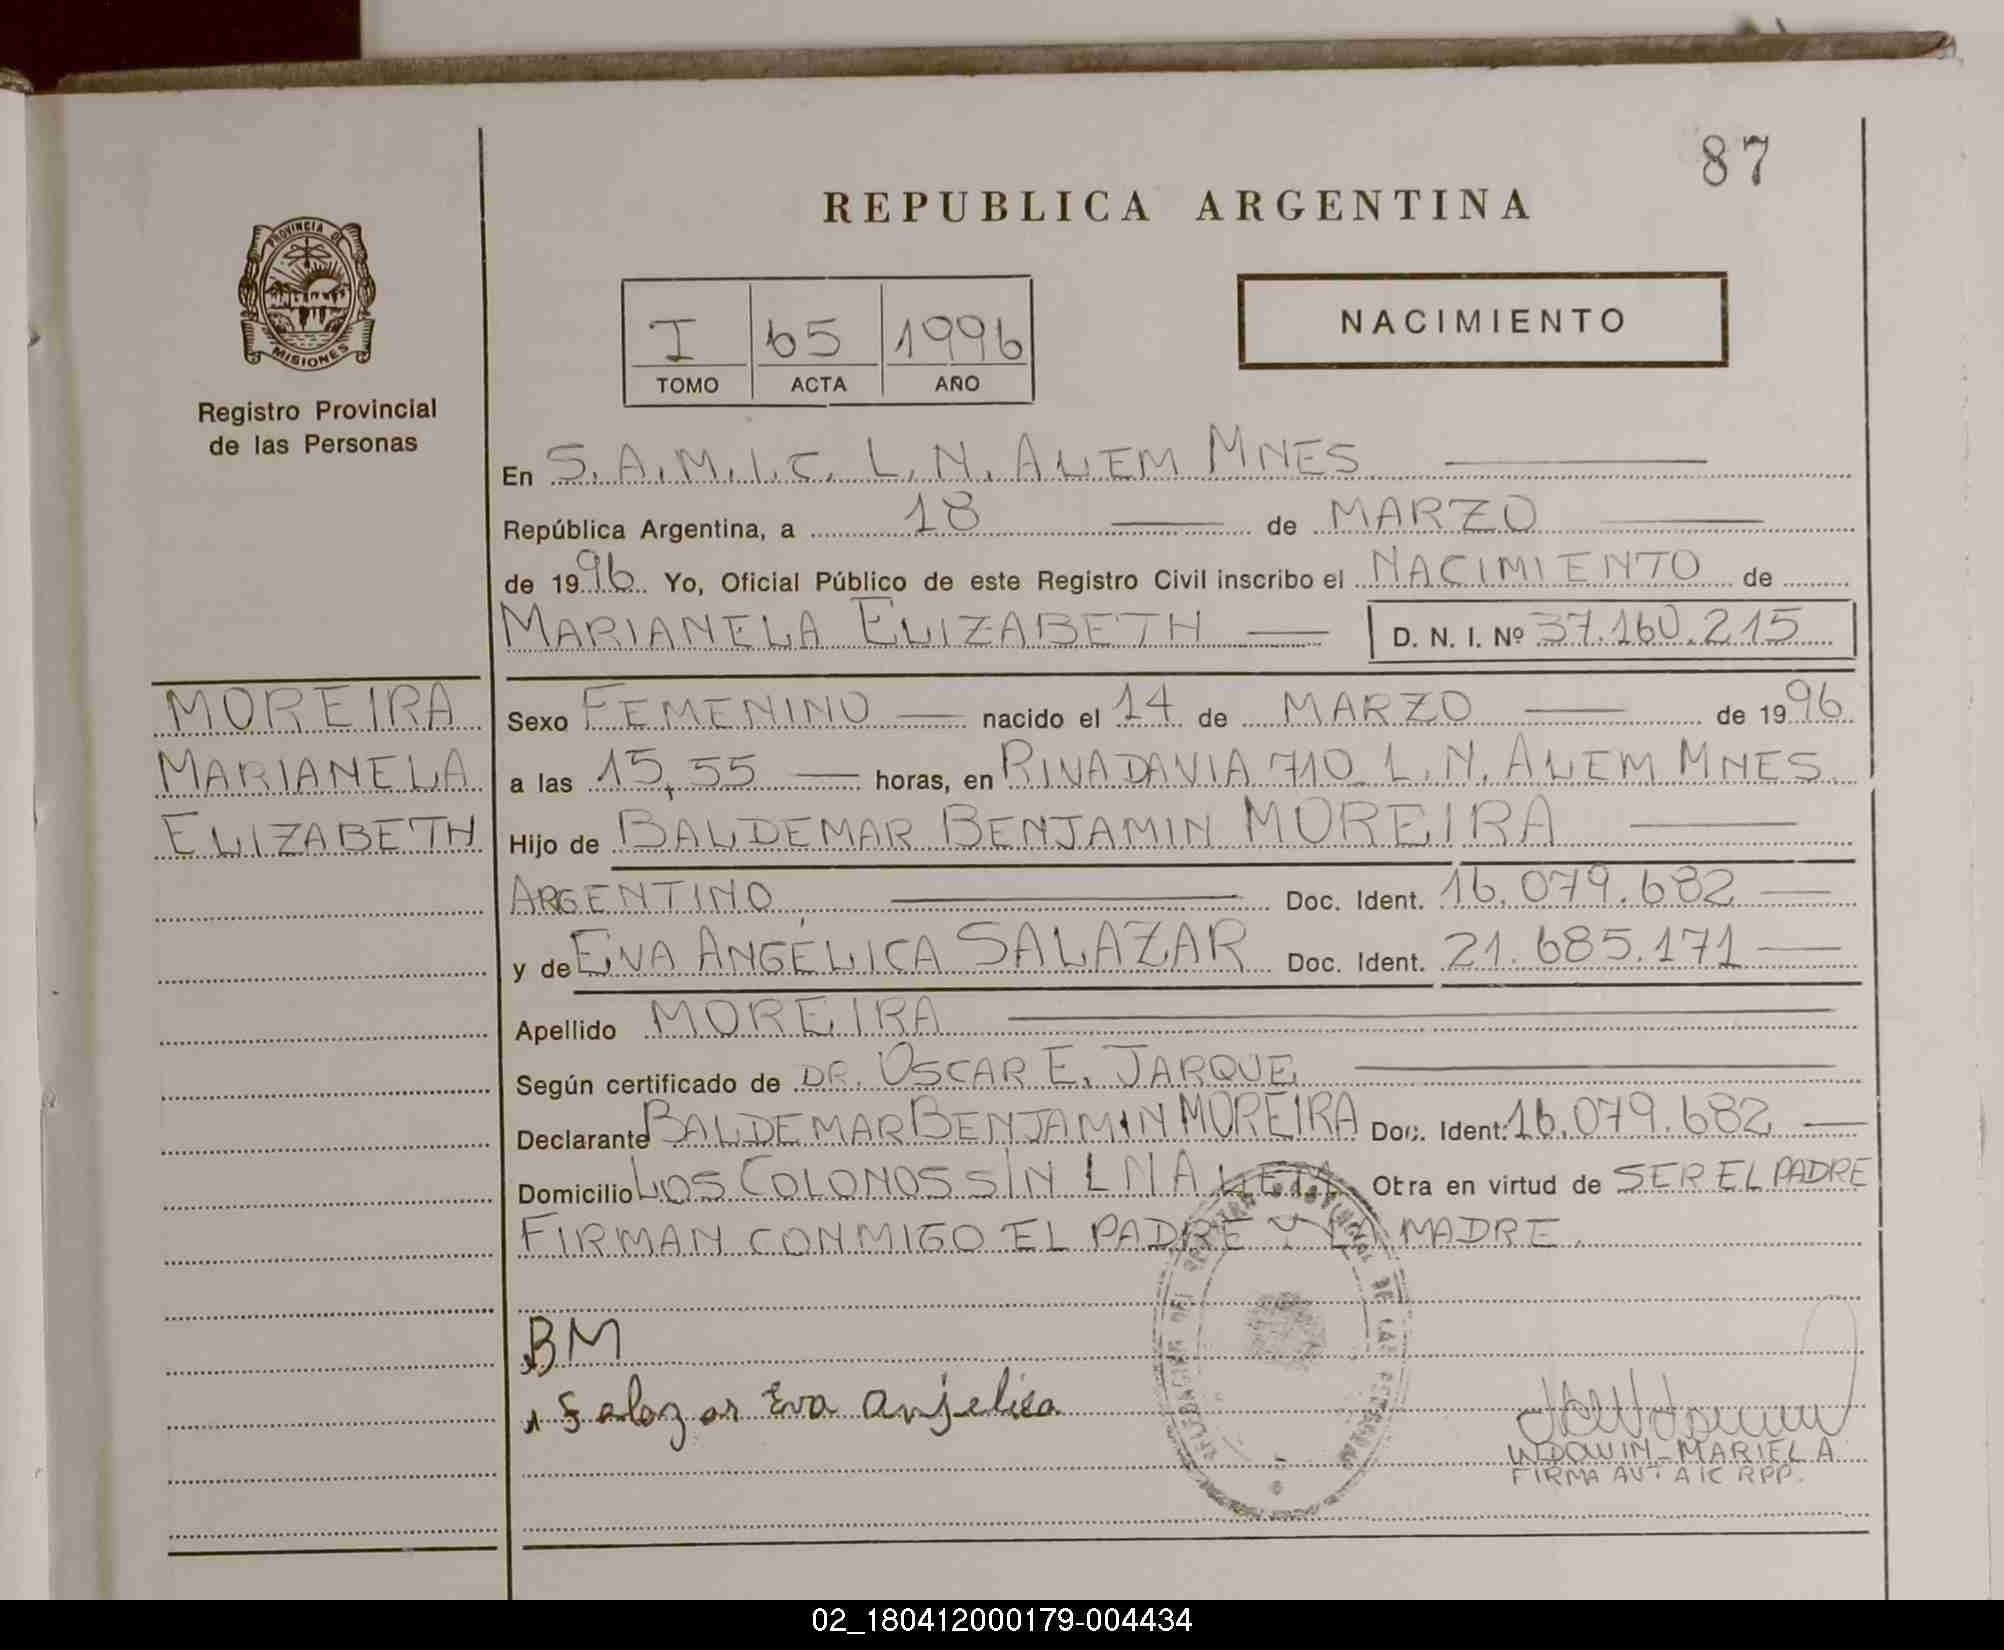 87
REPUBLICA ARGENTINA
PROVINCIA DE
MISIONES
Registro Provincial
de las Personas
I 65 1996
TOMO ACTA AÑO
NACIMIENTO
En S.A.M.I.C. L.N. ALEM MNES
República Argentina, a 18 de MARZO
de 1996 Yo, Oficial Público de este Registro Civil inscribo el NACIMIENTO de
MARIANELA ELIZABETH D. N. I. Nº 37.160.215
MOREIRA
MARIANELA
ELIZABETH
Sexo FEMENINO nacido el 14 de MARZO de 1996
a las 15,55 horas, en RIVADAVIA 710 L.N. ALEM MNES
Hijo de BALDEMAR BENJAMIN MOREIRA
ARGENTINO Doc. Ident. 16.079.682
y de EVA ANGÉLICA SALAZAR Doc. Ident. 21.685.171
Apellido MOREIRA
Según certificado de DR. OSCAR E. JARQUE
Declarante BALDEMAR BENJAMIN MOREIRA Doc. Ident: 16.079.682
Domicilio LOS COLONOS S/N L N ALEM Obra en virtud de SER EL PADRE
FIRMAN CONMIGO EL PADRE Y LA MADRE.
BM
Salazar Eva anjelica
WDOWIN-MARIELA
FIRMA AUT A/C RPP.
02_180412000179-004434